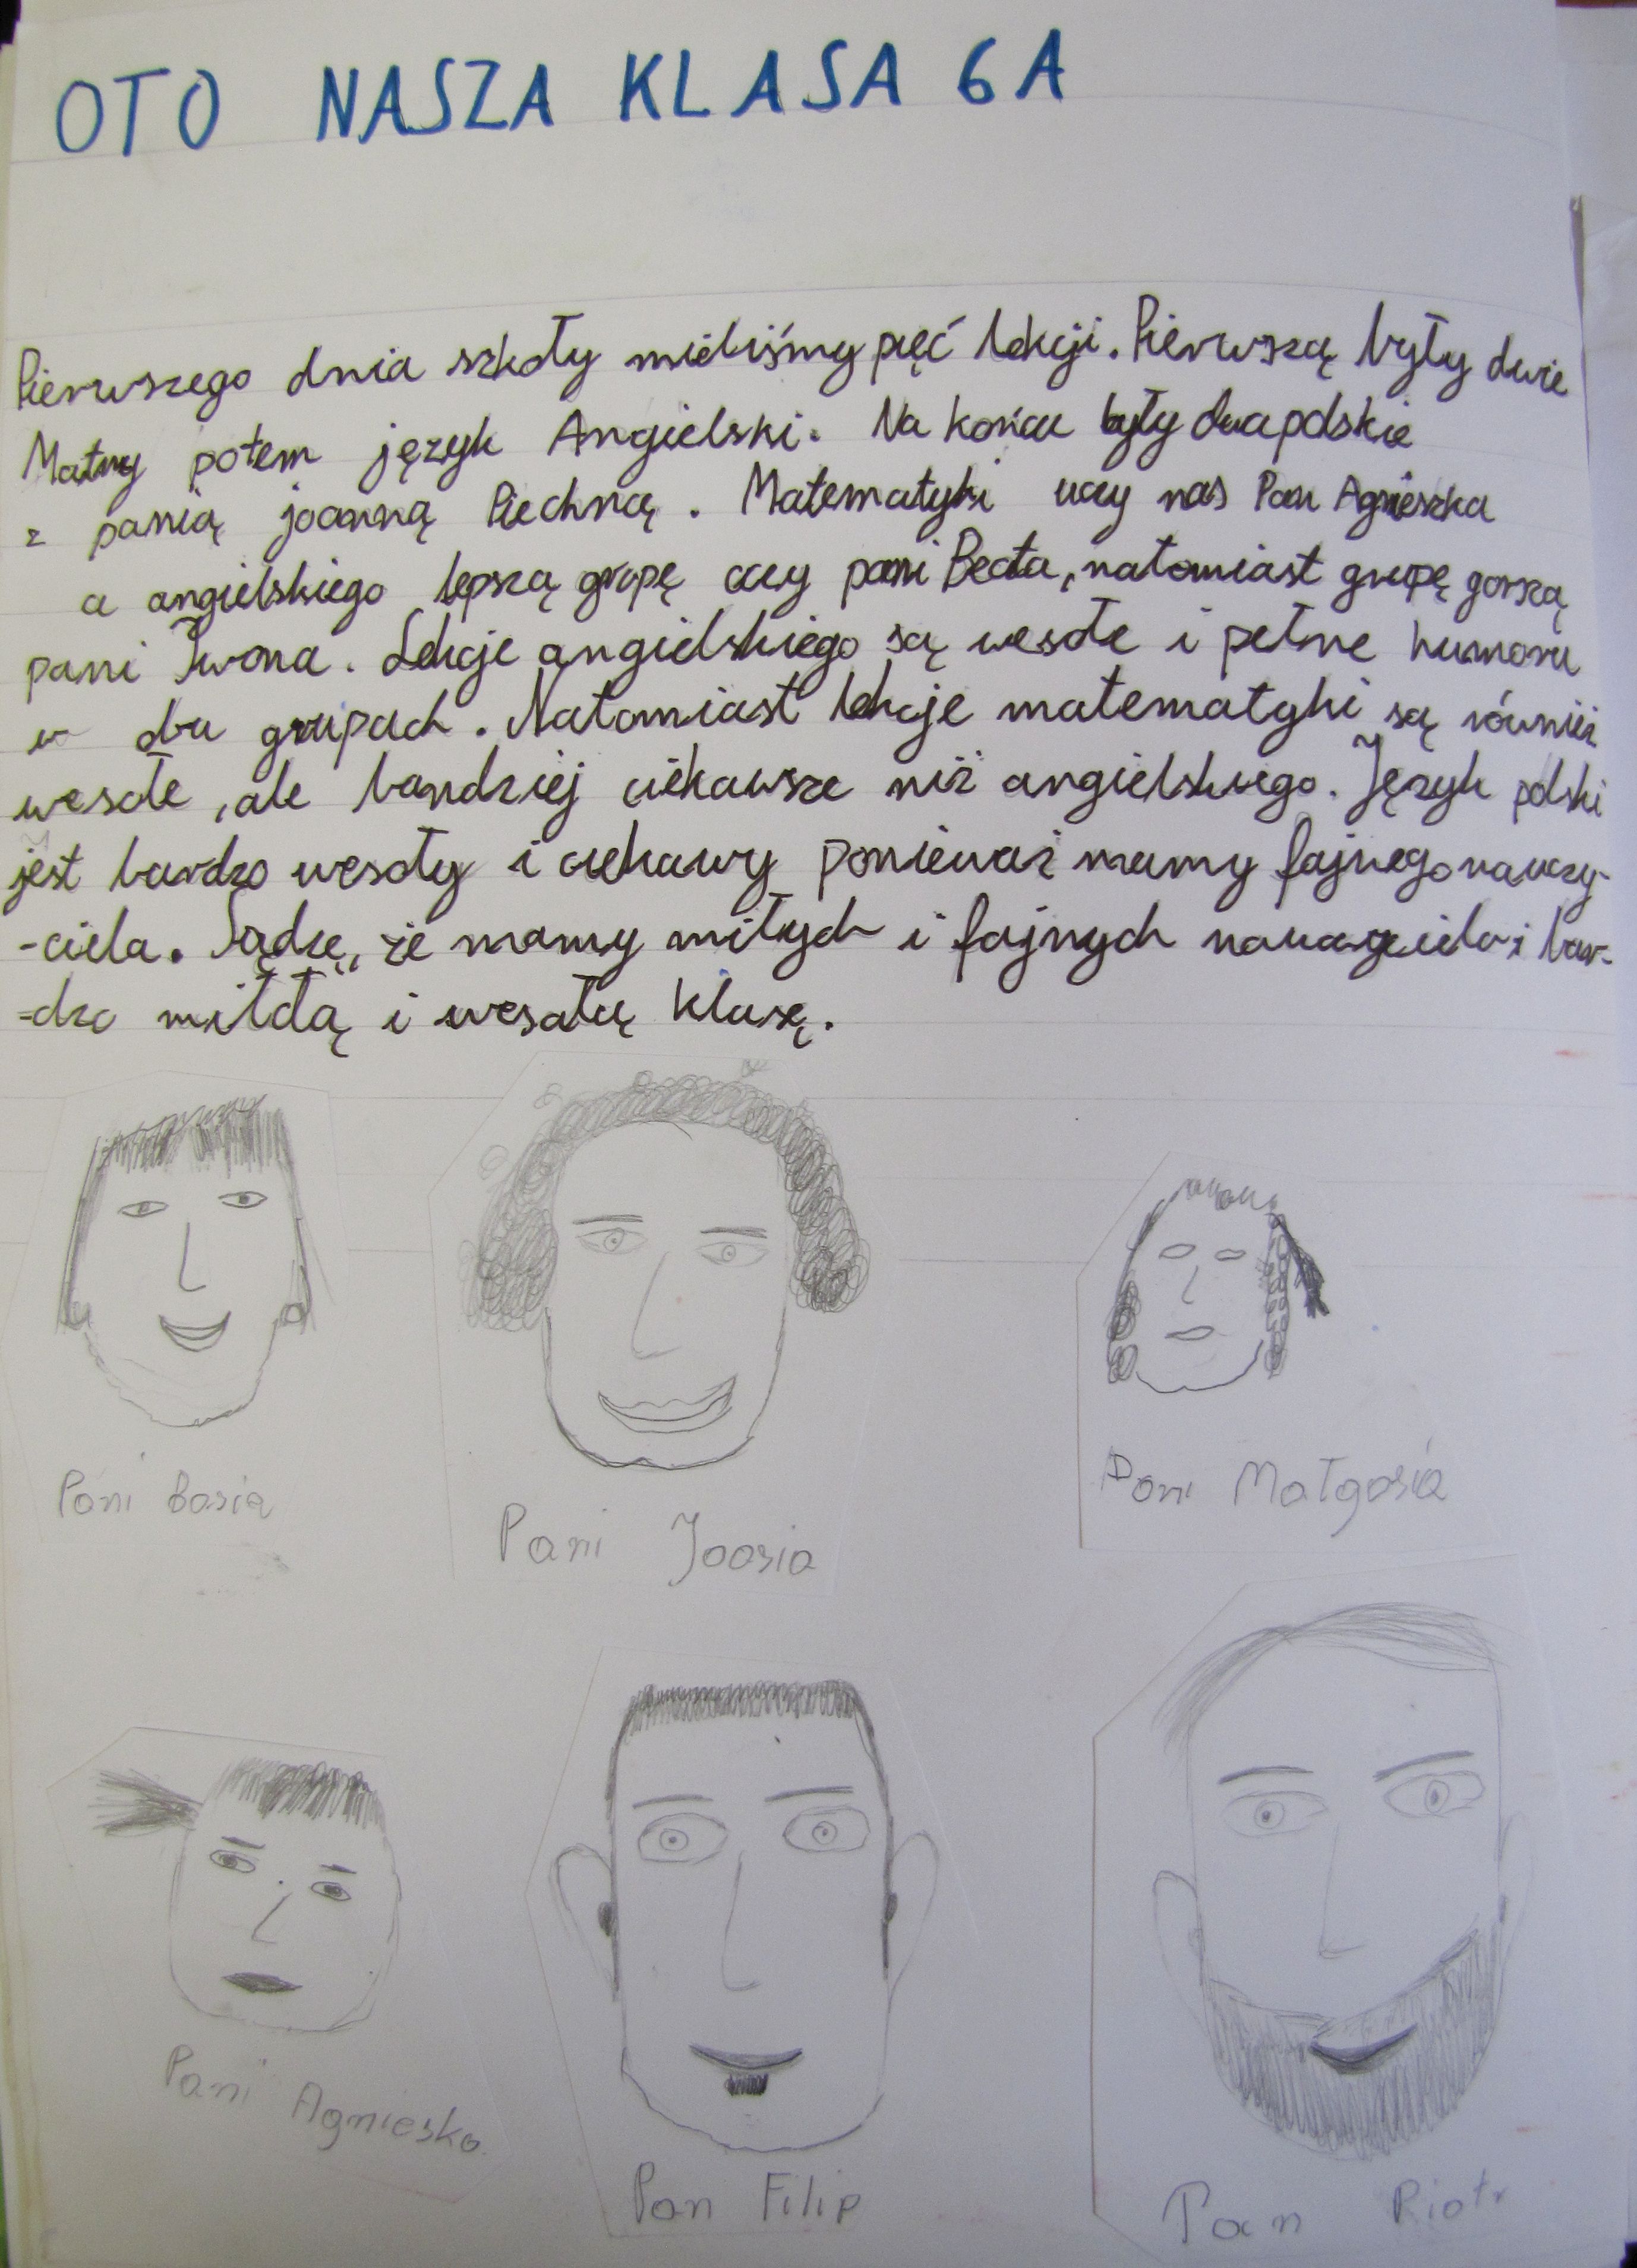 OTO NASZA KLASA 6A
Pierwszego dnia szkoły mieliśmy pięć lekcji. Pierwszą były dwie
Matmy potem język Angielski. Na końcu były dwa polskie
z panią joanną Piechną. Matematyki uczy nas Pani Agnieszka
a angielskiego lepszą grupę uczy pani Beata, natomiast grupę gorszą
pani Iwona. Lekcje angielskiego są wesołe i pełne humoru
w dwu grupach. Natomiast lekcje matematyki są również
wesołe, ale bardziej ciekawsze niż angielskiego. Język polski
jest bardzo wesoły i ciekawy ponieważ mamy fajnego nauczy-
-ciela. Sądzę, że mamy miłych i fajnych nauczycieli i bar-
-dzo miłą i wesołą klasę.
Pani Basia
Pani Joasia
Pani Małgosia
Pani Agnieska
Pan Filip
Pan Piotr